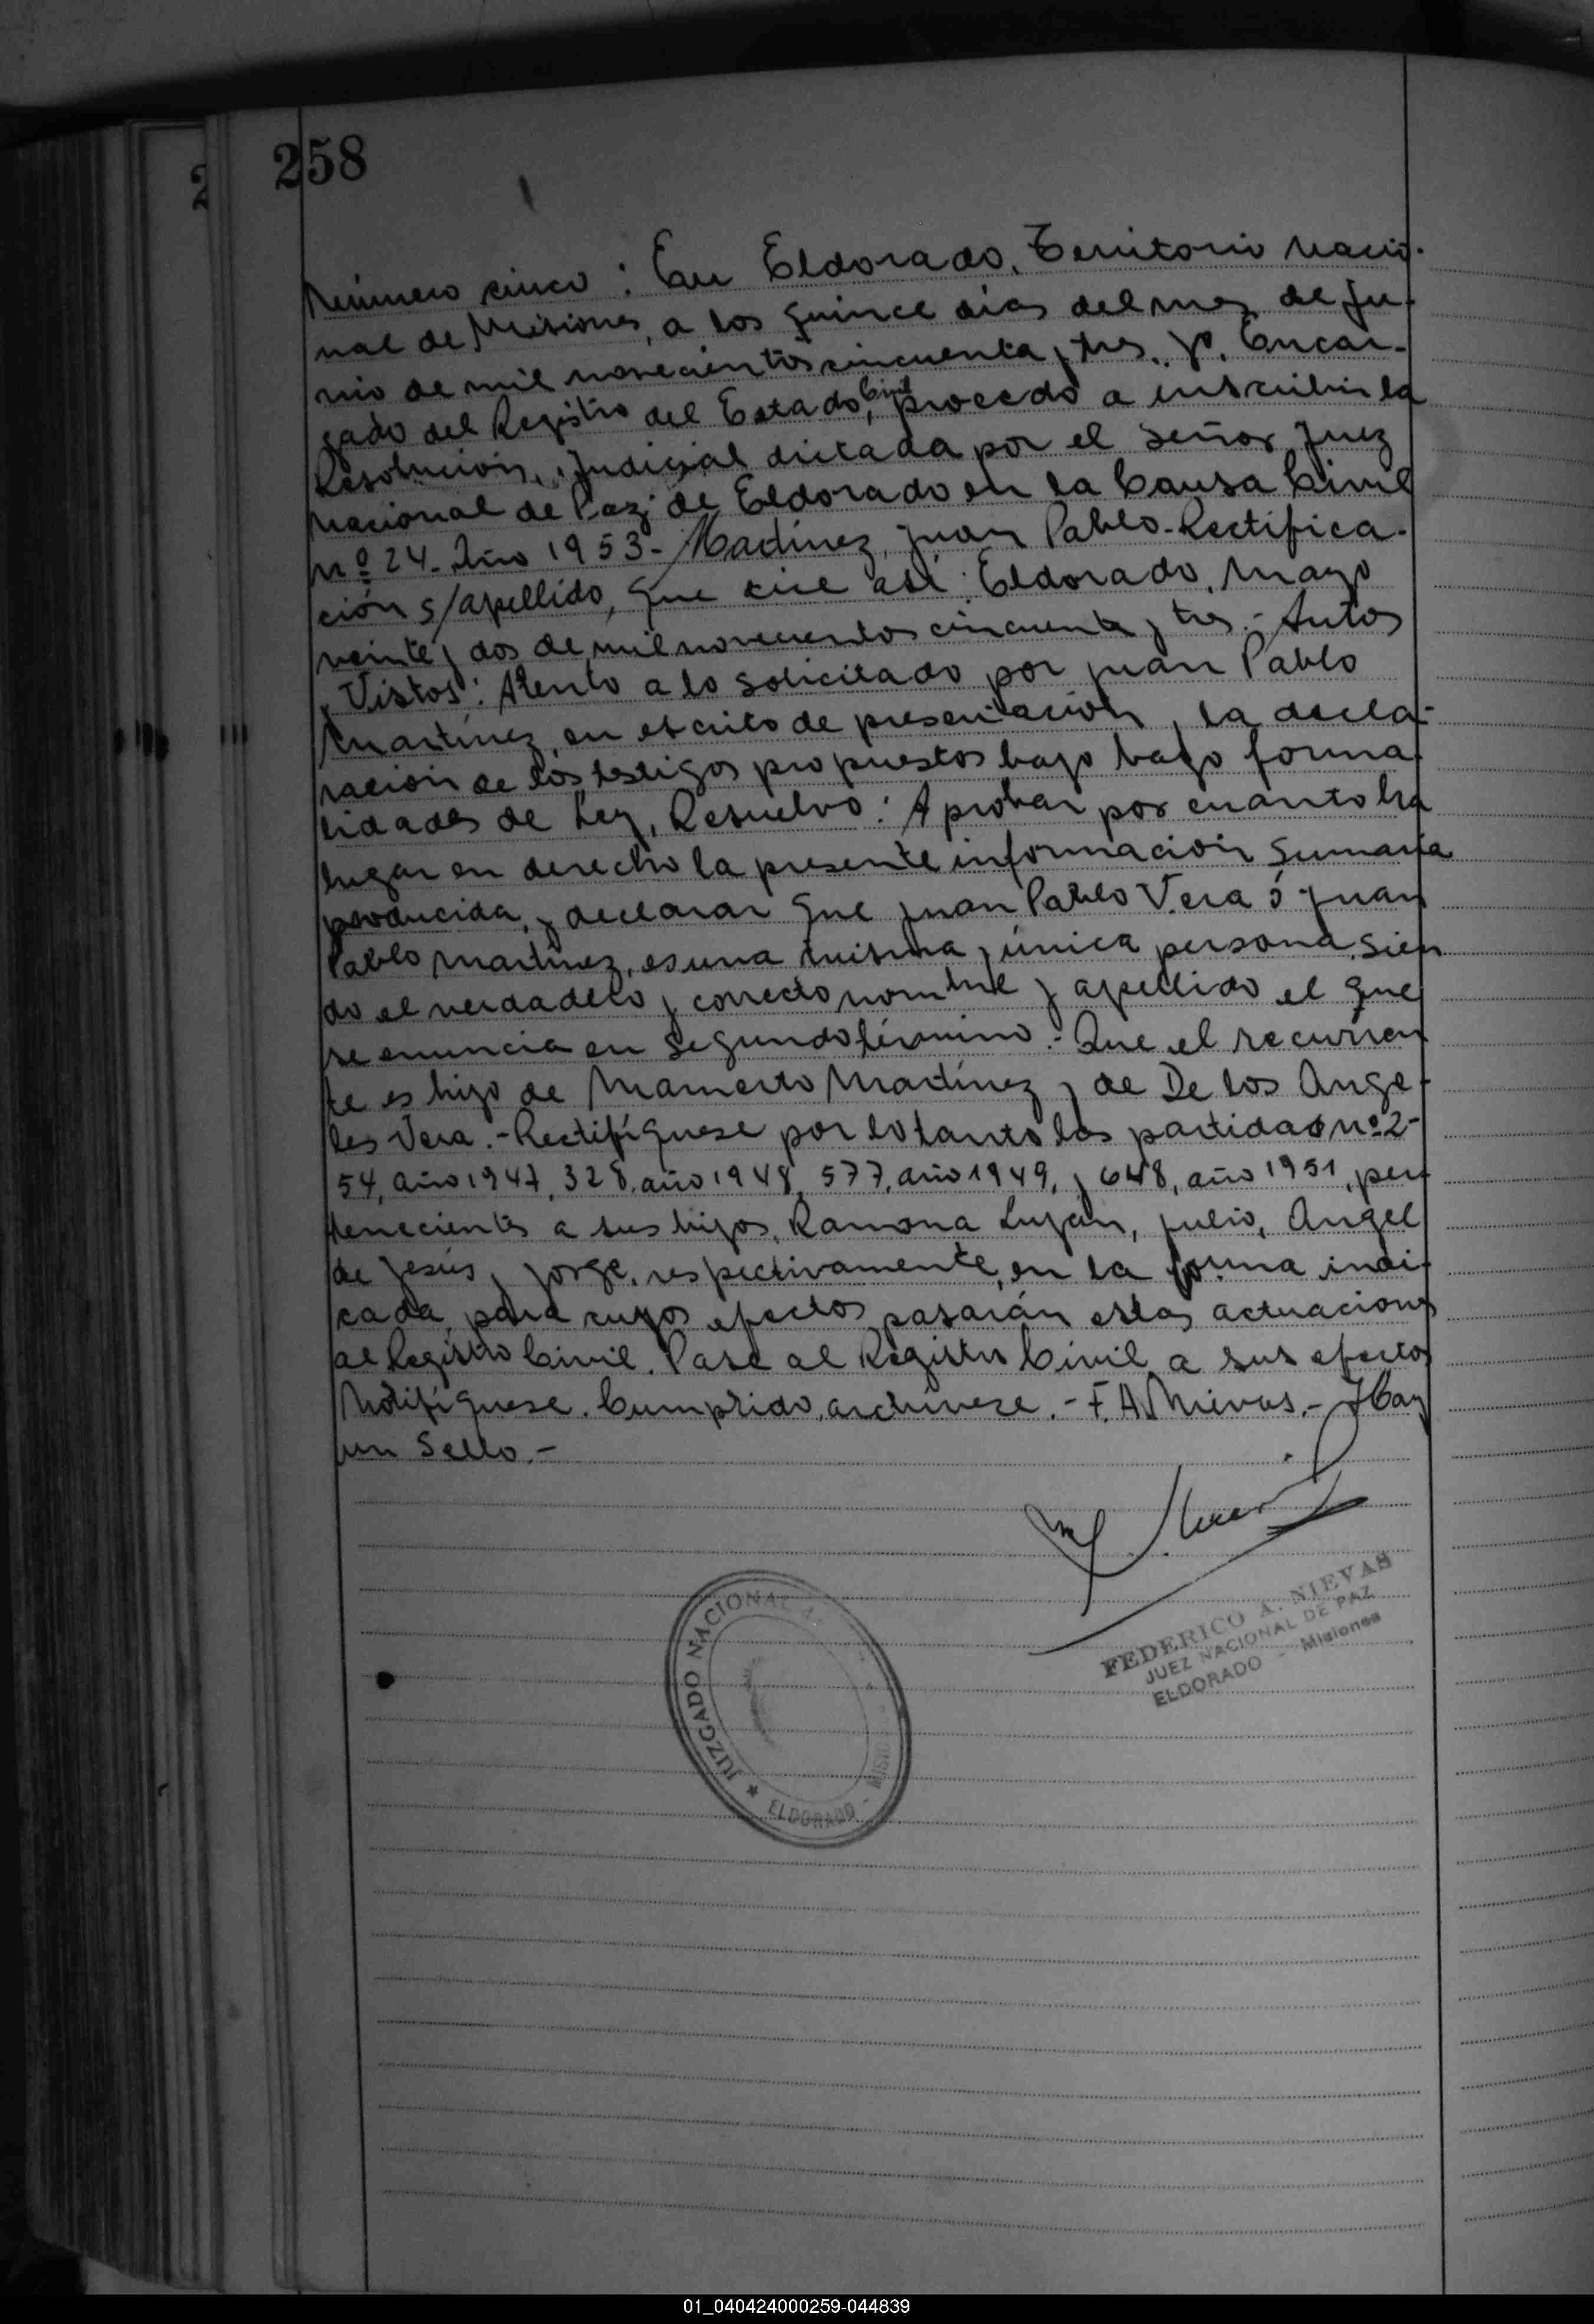 258
Número cinco: En Eldorado, Territorio Nacio-
nal de Misiones, a los quince días del mes de Ju-
nio de mil novecientos cincuenta y tres. Yo, Encar-
gado del Registro del Estado Civil, procedo a inscribir la
Resolución, Judicial dictada por el Señor Juez
Nacional de Paz de Eldorado en la Causa Civil
nº 24. Año 1953- Martínez, Juan Pablo- Rectifica-
ción s/apellido, que dice así: Eldorado, Mayo
veinte y dos de mil novecientos cincuenta y tres.- Autos
y Vistos: Atento a lo solicitado por Juan Pablo
Martínez, en escrito de presentación, la decla-
ración de los testigos propuestos bajo bajo forma-
lidades de Ley, Resuelvo: Aprobar por cuanto ha
lugar en derecho la presente información Sumaria
producida, y declarar que Juan Pablo Vera ó Juan
Pablo Martínez, es una misma y única persona, sien
do el verdadero y correcto nombre y apellido el que
se enuncia en Segundo término.- Que el recurren
te es hijo de Mamerto Martínez y de De los Ange-
les Vera.- Rectifíquese por lo tanto las partidas nº 2-
54, año 1947, 328, año 1948, 577, año 1949, y 648, año 1951, per-
tenecientes a sus hijos, Ramona Luján, Julio, Angel
de Jesús y Jorge, respectivamente, en la forma indi-
cada, para cuyos efectos pasarán estas actuaciones
al Registro Civil. Pase al Registro Civil a sus efectos
Notifíquese. Cumplido, archívese.- F. A. Nievas.- Hay
un Sello.-
FEDERICO A. NIEVAS
JUEZ NACIONAL DE PAZ
ELDORADO - Misiones
JUZGADO NACIONAL
★ ELDORADO -
01_040424000259-044839